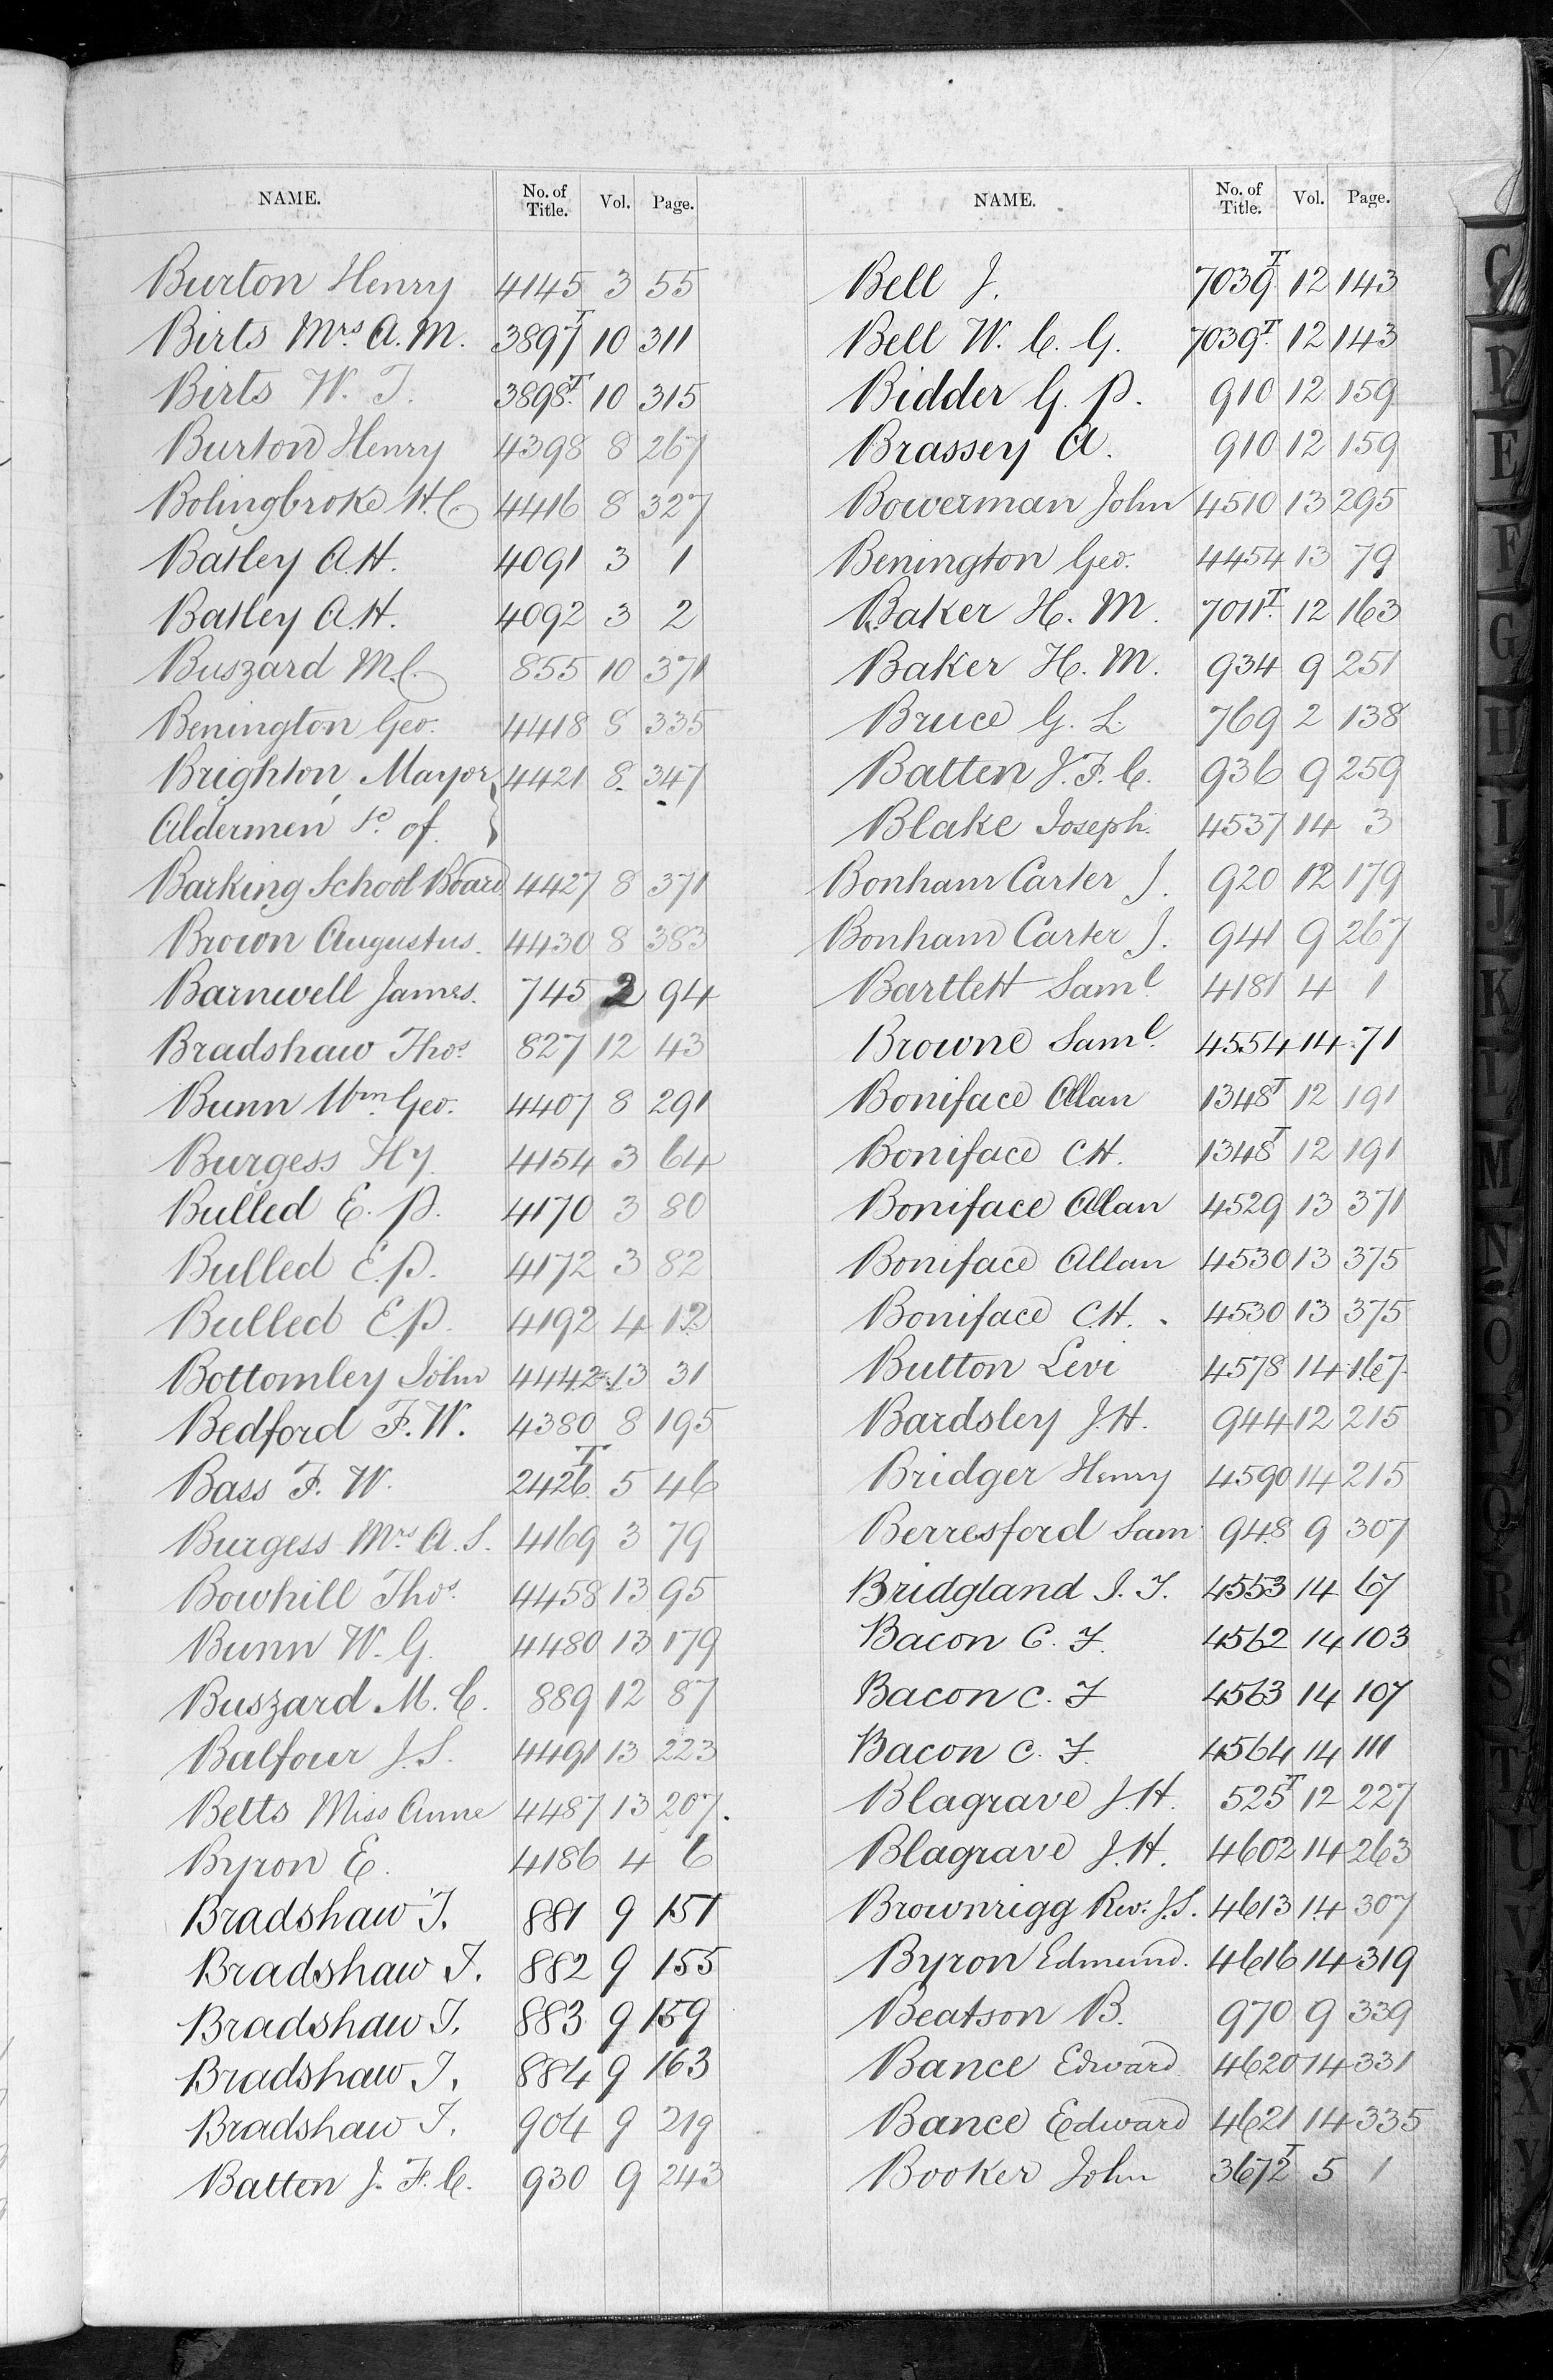 NAME. No. of Title. Vol. Page.
Burton Henry 4145 3 55
Birts Mrs A. M. 3897T 10 311
Birts W. T. 3898T 10 315
Burton Henry 4398 8 267
Bolingbroke H. C. 4416 8 327
Batley A. H. 4091 3 1
Batley A. H. 4092 3 2
Buszard M. C. 855 10 371
Benington Geo. 4418 8 335
Brighton, Mayor 4421 8 347
Aldermen &c. of }
Barking School Board 4427 8 371
Brown Augustus. 4430 8 383
Barnwell James. 745 2 94
Bradshaw Thos. 827 12 43
Bunn Wm. Geo. 4407 8 291
Burgess Hy. 4154 3 64
Bulled E. P. 4170 3 80
Bulled E. P. 4172 3 82
Bulled E. P. 4192 4 12
Bottomley John 4442 13 31
Bedford F. W. 4380 8 195
Bass F. W. 2426T 5 46
Burgess Mrs A. S. 4169 3 79
Bowhill Thos. 4458 13 95
Bunn W. G. 4480 13 179
Buszard M. C. 889 12 87
Balfour J. S. 4491 13 223
Betts Miss Anne 4487 13 207.
Byron E. 4186 4 6
Bradshaw T. 881 9 151
Bradshaw T. 882 9 155
Bradshaw T. 883 9 159
Bradshaw T. 884 9 163
Bradshaw T. 904 9 219
Batten J. F. C. 930 9 243
NAME. No. of Title. Vol. Page.
Bell J. 7039T 12 143
Bell W. C. G. 7039T 12 143
Bidder G. P. 910 12 159
Brassey A. 910 12 159
Bowerman John 4510 13 295
Benington Geo. 4454 13 79
Baker H. M. 7011T 12 163
Baker H. M. 934 9 251
Bruce G. L. 769 2 138
Batten J. F. C. 936 9 259
Blake Joseph. 4537 14 3
Bonham Carter J. 920 12 179
Bonham Carter J. 941 9 267
Bartlett Saml. 4181 4 1
Browne Saml. 4554 14 71
Boniface Allan 1348T 12 191
Boniface C. H. 1348T 12 191
Boniface Allan 4529 13 371
Boniface Allan 4530 13 375
Boniface C. H. 4530 13 375
Button Levi 4578 14 167
Bardsley J. H. 944 12 215
Bridger Henry 4590 14 215
Berresford Sam 948 9 307
Bridgland I. T. 4553 14 67
Bacon C. F. 4562 14 103
Bacon C. F 4563 14 107
Bacon C. F. 4564 14 111
Blagrave J. H. 525T 12 227
Blagrave J. H. 4602 14 263
Brownrigg Rev. J. S. 4613 14 307
Byron Edmund. 4616 14 319
Beatson B. 970 9 339
Bance Edward 4620 14 331
Bance Edward 4621 14 335
Booker John 3672T 5 1
C
D
E
F
G
H
I
J
K
L
M
N
O
P
Q
R
S
T
U
V
W
X
Y